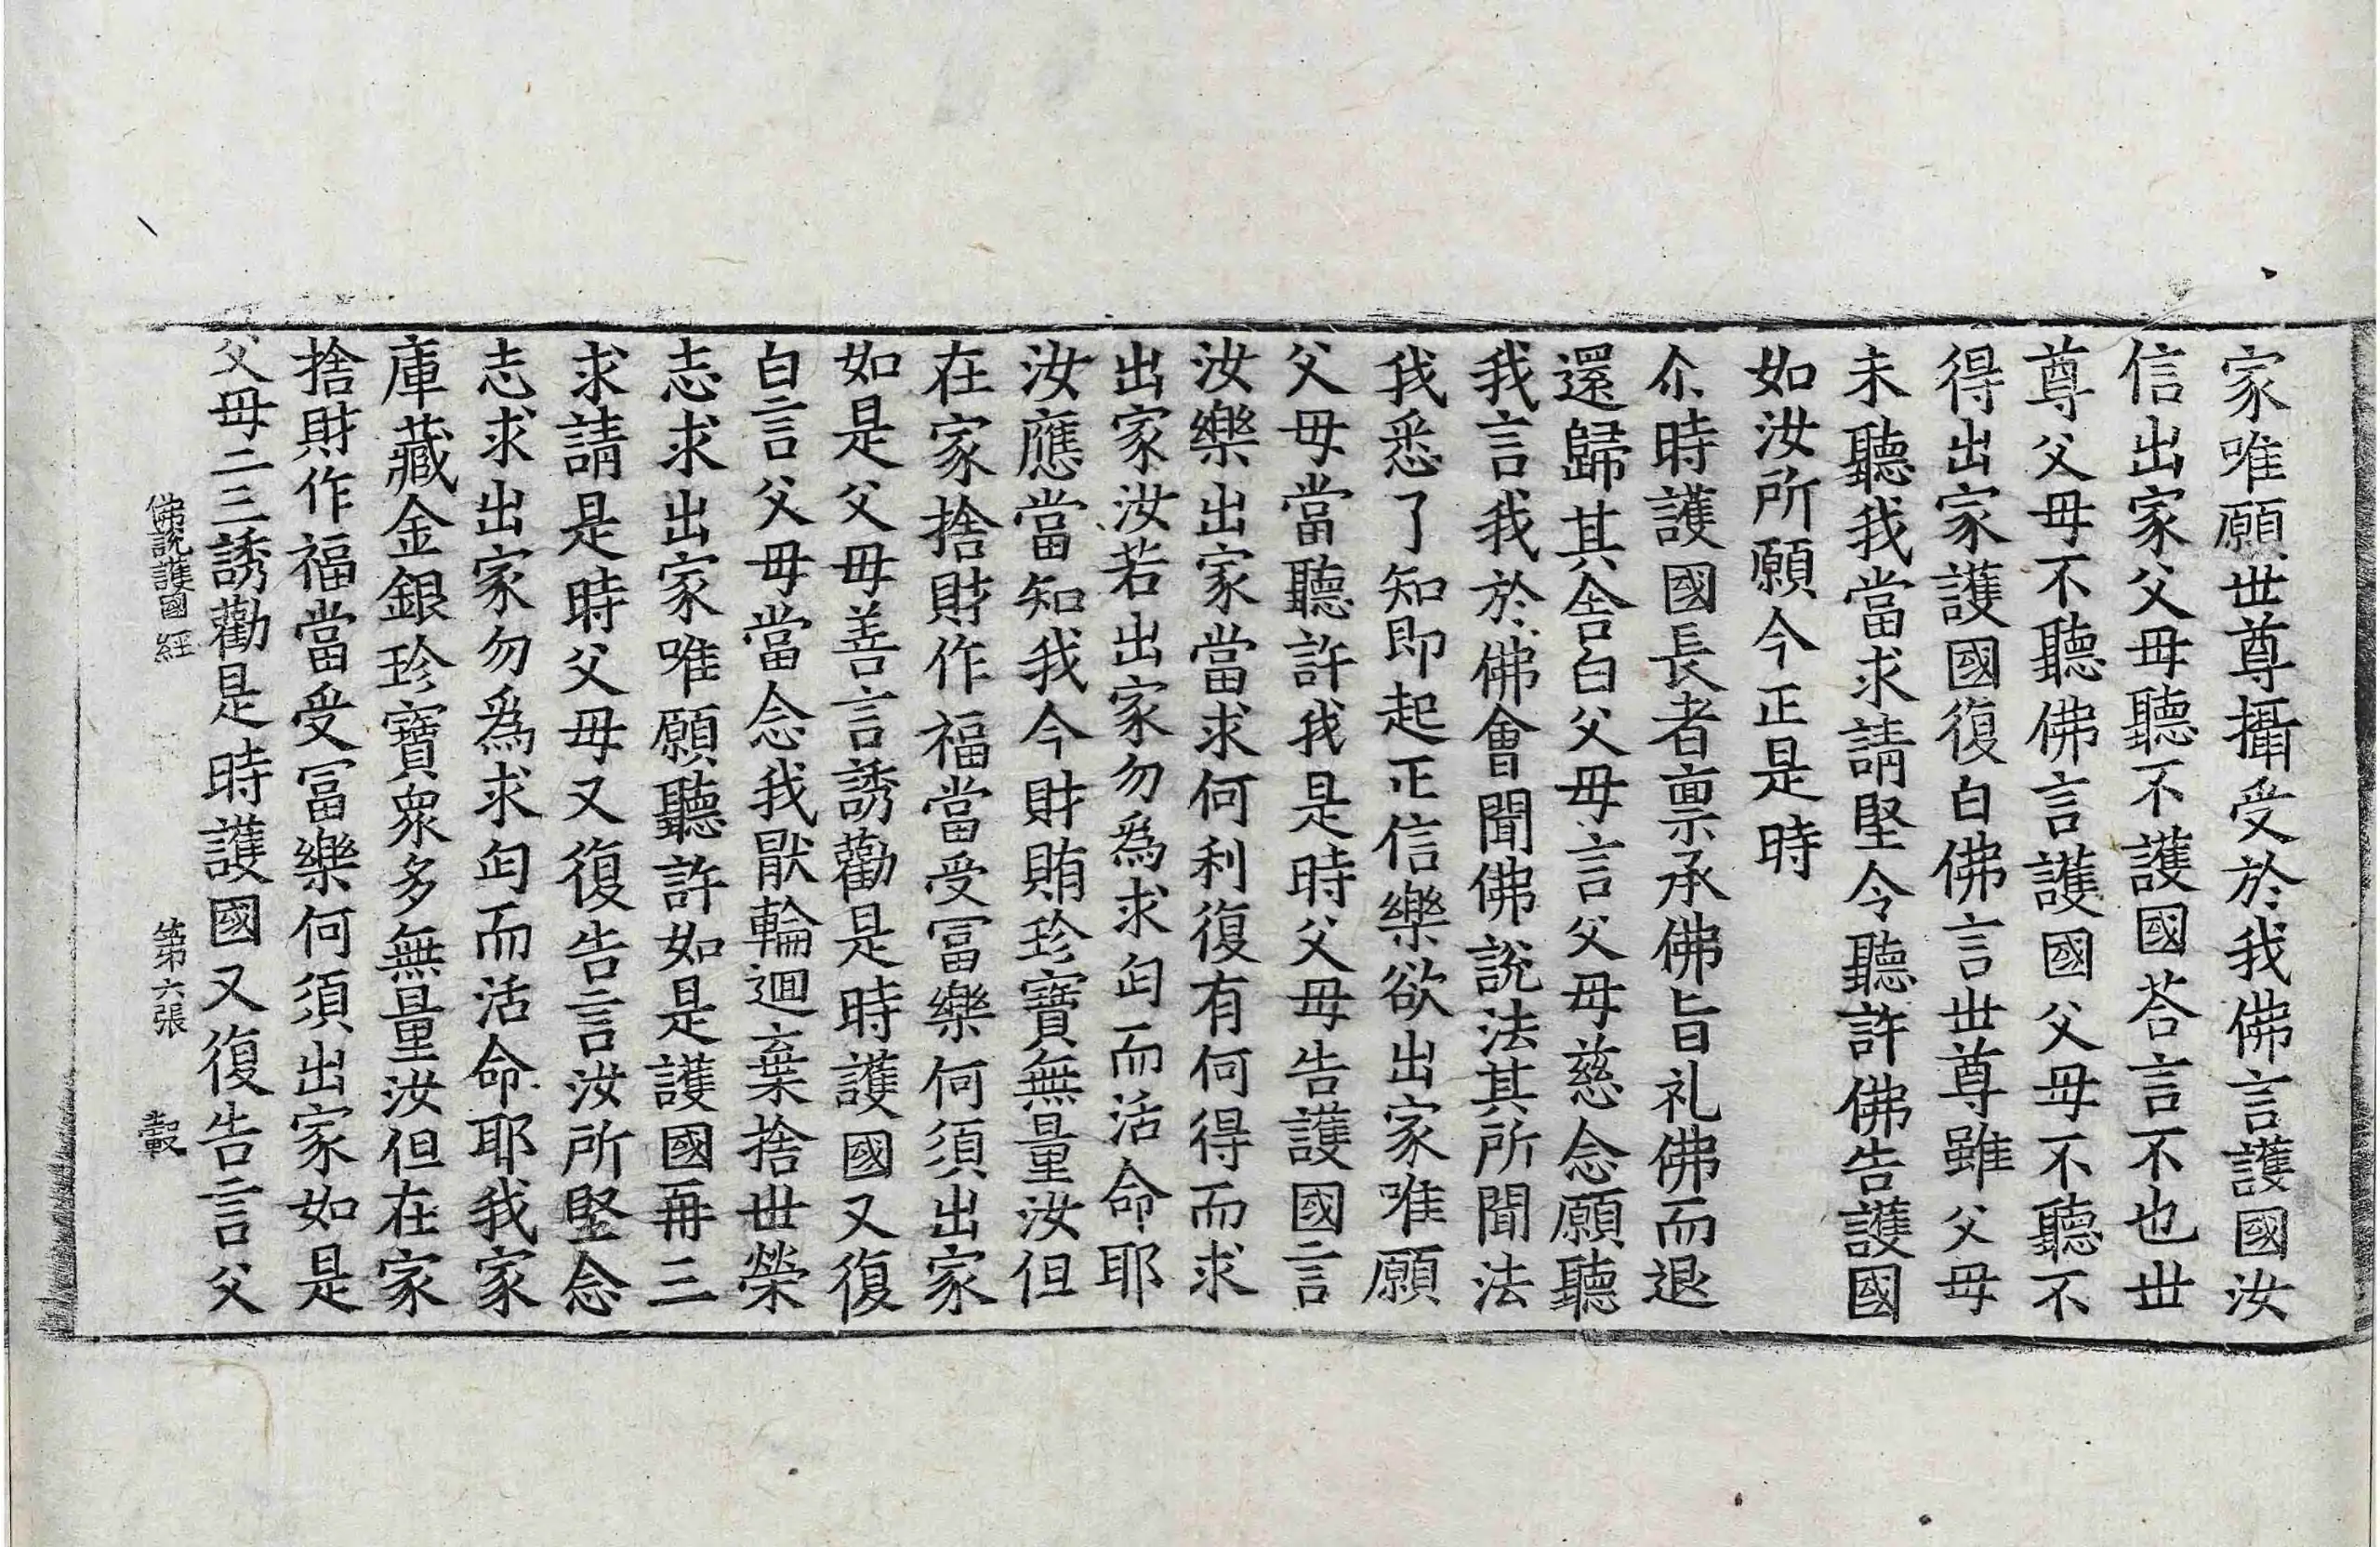 家唯願世尊攝受於我佛言護國汝
信出家父母聽不護國荅言不也世
尊父母不聽佛言護國父母不聽不
得出家護國復白佛言世尊雖父母
未聽我當求請堅令聽許佛告護國
如汝所願今正是時
尒時護國長者稟承佛旨礼佛而退
還歸其舍白父母言父母慈念願聽
我言我於佛會聞佛說法其所聞法
我悉了知即起正信樂欲出家唯願
父母當聽許我是時父母告護國言
汝樂出家當求何利復有何得而求
出家汝若出家勿為求匃而活命耶
汝應當知我今財賄珍寶無量汝但
在家捨財作福當受冨樂何須出家
如是父母善言誘勸是時護國又復
白言父母當念我猒輪迴棄捨世榮
志求出家唯願聽許如是護國再三
求請是時父母又復告言汝所堅念
志求出家勿為求匃而活命耶我家
庫藏金銀珍寶衆多無量汝但在家
捨財作福當受冨樂何須出家如是
父母二三誘勸是時護國又復告言父
佛說護國經 第六張 轂